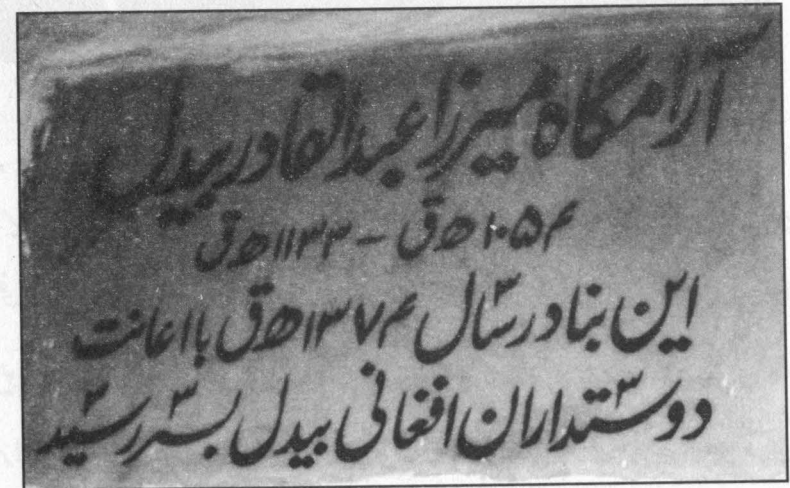 آرامگاه میرزا عبدالقادر بیدل
۱۰۵۴ ه‍ ق - ۱۱۳۳ ه‍ ق
این بنا در سال ۱۳۷۴ ه‍ ق با اعانت
دوستداران افغانی بیدل بسر رسید